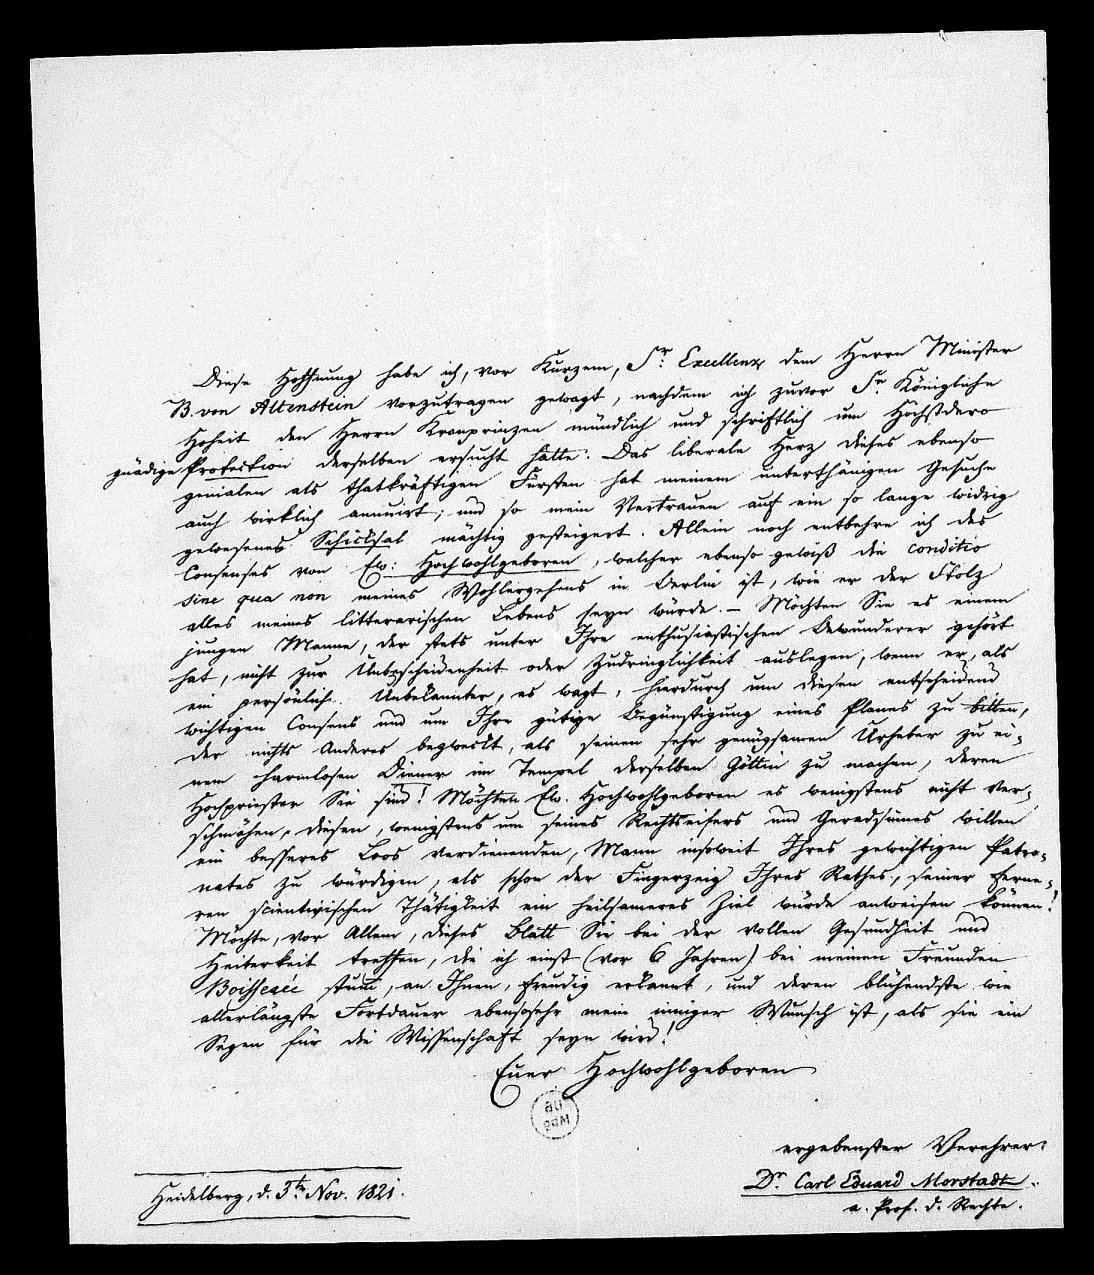 Diese Hoffnung habe ich, vor Kurzem, Sr. Excellenz dem Herrn Minister
B. von Altenstein vorzutragen gewagt, nachdem ich zuvor Sr. Königliche
Hoheit den Herrn Kronprinzen mündlich und schriftlich um Höchstdero
gnädige Protection derselben ersucht hatte. Das liberale Herz dieses ebenso
genialen als thatkräftigen Fürsten hat meinem unterthänigen Gesuche
auch wirklich annuirt; und so mein Vertrauen auf ein so lange widrig
gewesenes Schicksal mächtig gesteigert. Allein noch entbehre ich des
Consenses von Ew: Hochwohlgeboren, welcher ebenso gewiß die conditio
sine qua non meines Wohlergehens in Berlin ist, wie er der Stolz
alles meines litterarischen Lebens seyn würde. – Möchten Sie es einem
jungen Manne, der stets unter Ihre enthusiastischen Bewunderer gehört
hat, nicht zur Unbescheidenheit oder Zudringlichkeit auslegen, wenn er, als
ein persönlich Unbekannter, es wagt, hierdurch um diesen entscheidend
wichtigen Consens und um Ihre gütige Begünstigung eines Planes zu bitten,
der nichts Anderes bezweckt, als seinen sehr genügsamen Urheber zu ei-
nem harmlosen Diener im Tempel derselben Göttin zu machen, deren
Hochpriester Sie sind! Möchten Ew. Hochwohlgeboren es wenigstens nicht ver-
schmähen, diesen, wenigstens um seines Rechtseifers und Geradsinnes willen
ein besseres Loos verdienenden, Mann insoweit Ihres gewichtigen Patro-
nates zu würdigen, als schon der Fingerzeig Ihres Rathes, seiner ferne-
ren scientivischen Thätigkeit ein heilsameres Ziel würde anweisen können!
Möchte, vor Allem, dieses Blatt Sie bei der vollen Gesundheit und
Heiterkeit treffen, die ich einst (vor 6 Jahren) bei meinen Freunden
Boisserée stumm, an Ihnen, freudig erkannt, und deren blühendste wie
allerlängste Fortdauer ebensosehr mein inniger Wunsch ist, als sie ein
Segen für die Wissenschaft seyn wird!
Euer Hochwohlgeboren
ergebenster Verehrer:
Dr. Carl Eduard Morstadt.
a. Prof. d. Rechte.
Heidelberg, d. 5te Nov. 1821.